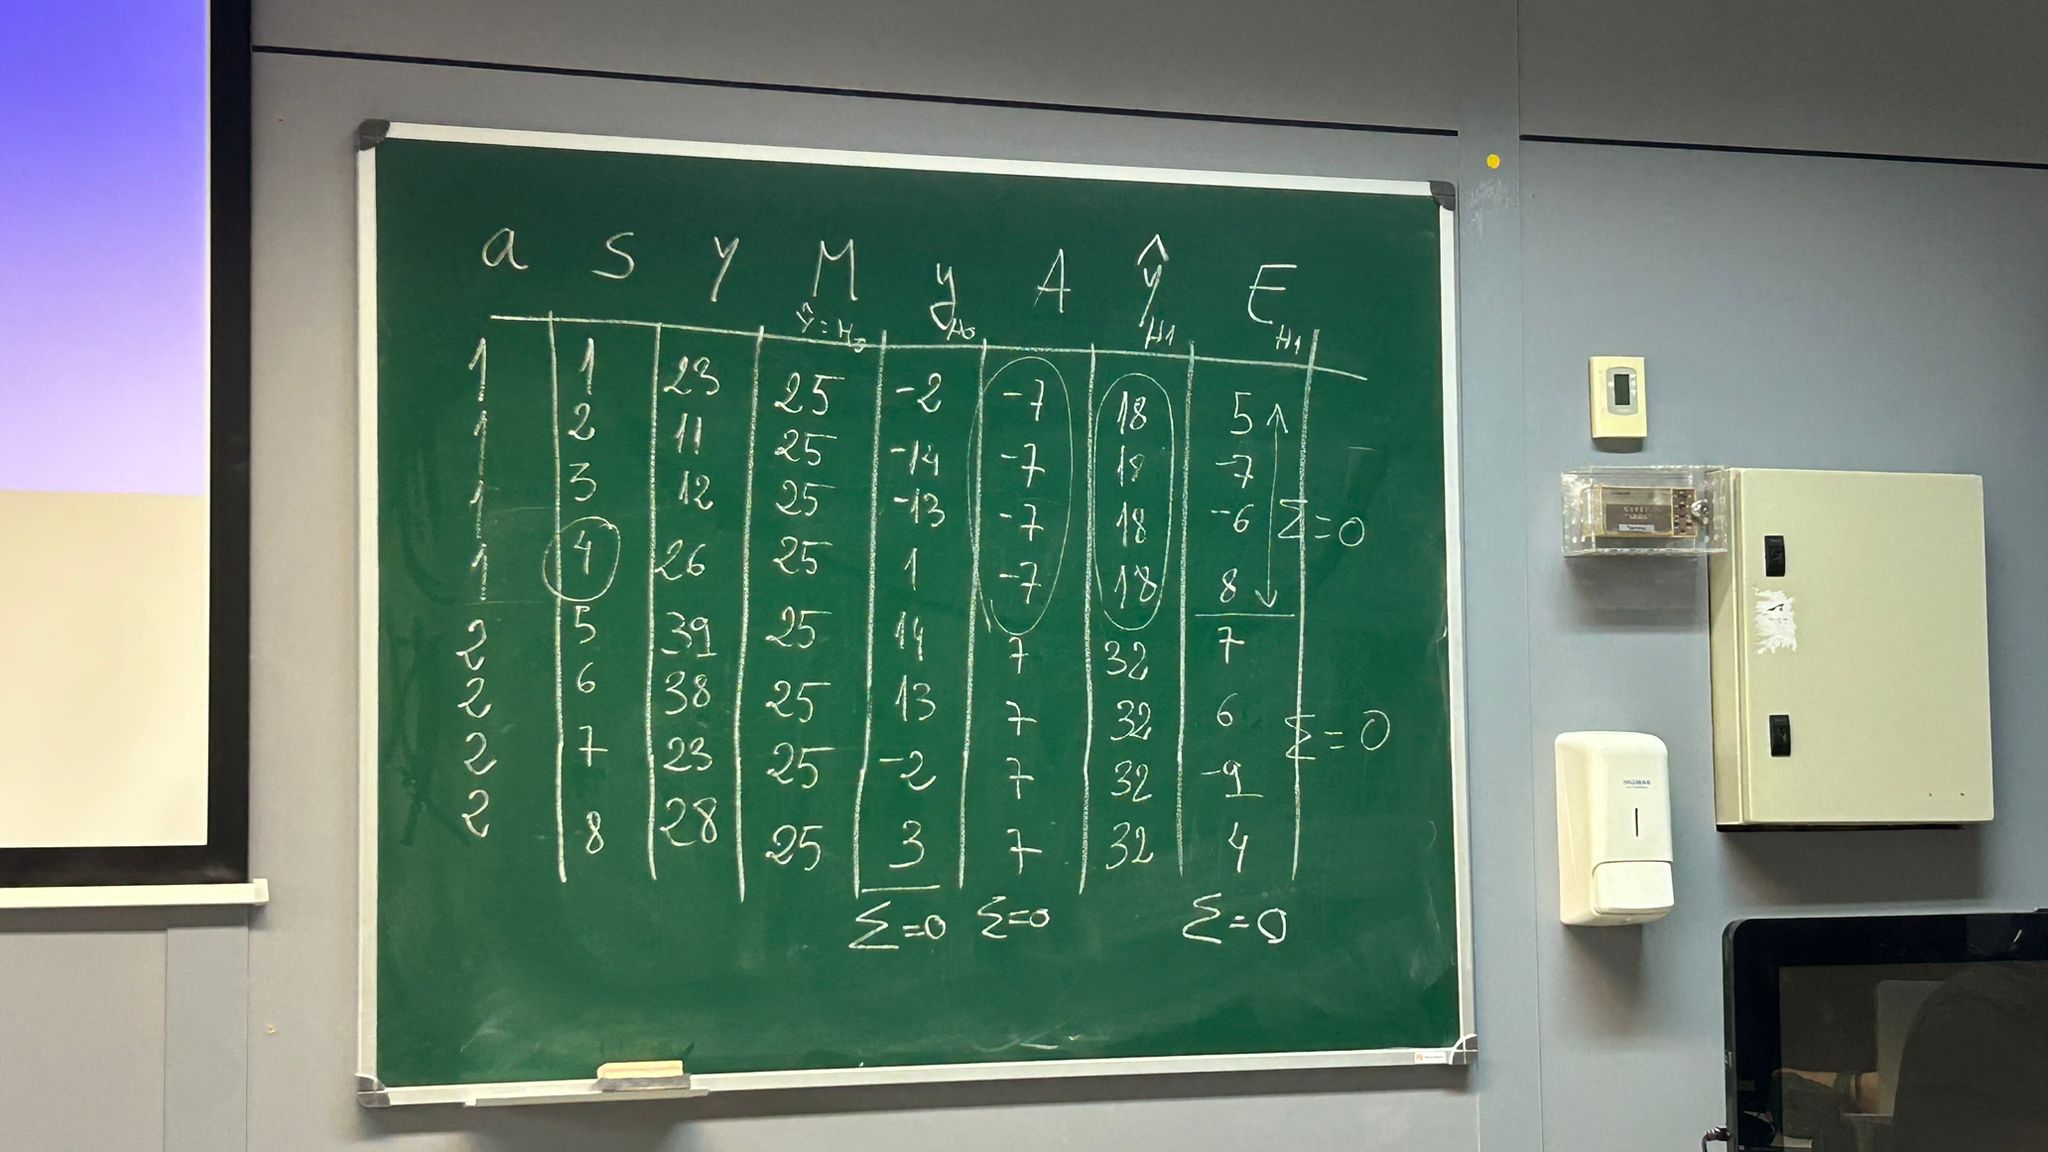 a S Y M y A ŷ E
Ŷ=H₀ H₀ H1 H1
1 1 23 25 -2 -7 18 5
1 2 11 25 -14 -7 18 -7
1 3 12 25 -13 -7 18 -6 Σ=0
1 4 26 25 1 -7 18 8
2 5 39 25 14 7 32 7
2 6 38 25 13 7 32 6 Σ=0
2 7 23 25 -2 7 32 -9
2 8 28 25 3 7 32 4
Σ=0 Σ=0 Σ=0